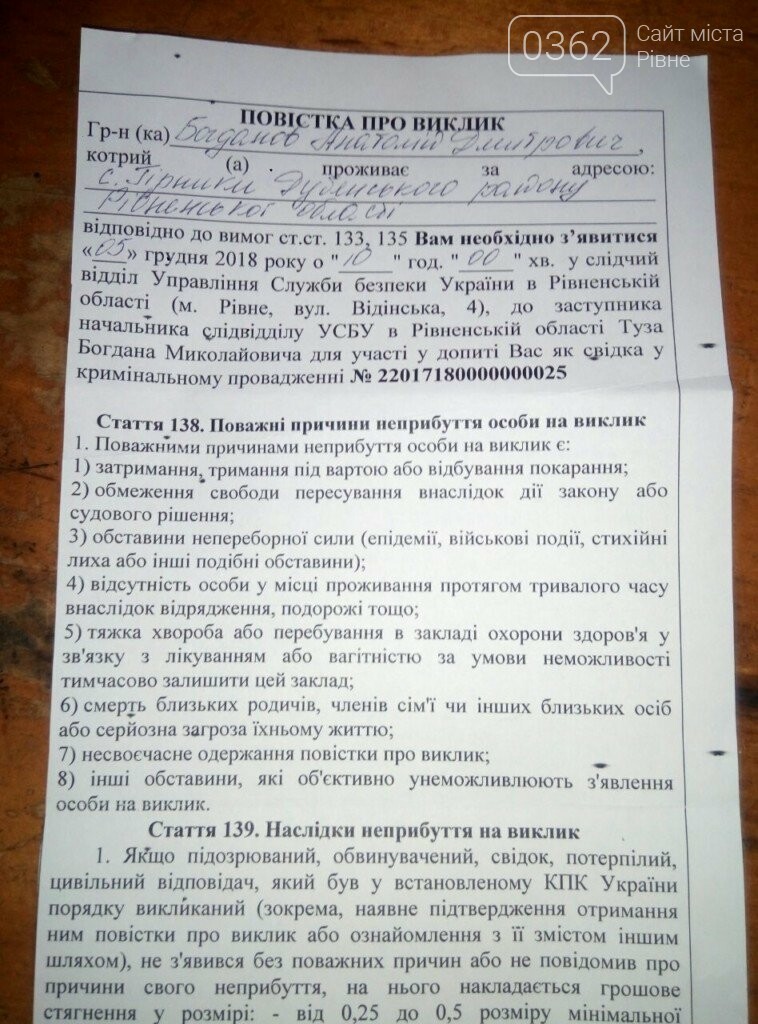 0362
Сайт міста
Рівне
ПОВІСТКА ПРО ВИКЛИК
Гр-н (ка) Богданов Анатолій Дмитрович,
котрий (а) проживає за адресою:
с. Гірники Дубенського району
Рівненської області
відповідно до вимог ст.ст. 133, 135 Вам необхідно з’явитися
«05» грудня 2018 року о "10" год. "00" хв. у слідчий
відділ Управління Служби безпеки України в Рівненській
області (м. Рівне, вул. Відінська, 4), до заступника
начальника слідвідділу УСБУ в Рівненській області Туза
Богдана Миколайовича для участі у допиті Вас як свідка у
кримінальному провадженні № 22017180000000025
Стаття 138. Поважні причини неприбуття особи на виклик
1. Поважними причинами неприбуття особи на виклик є:
1) затримання, тримання під вартою або відбування покарання;
2) обмеження свободи пересування внаслідок дії закону або
судового рішення;
3) обставини непереборної сили (епідемії, військові події, стихійні
лиха або інші подібні обставини);
4) відсутність особи у місці проживання протягом тривалого часу
внаслідок відрядження, подорожі тощо;
5) тяжка хвороба або перебування в закладі охорони здоров'я у
зв'язку з лікуванням або вагітністю за умови неможливості
тимчасово залишити цей заклад;
6) смерть близьких родичів, членів сім'ї чи інших близьких осіб
або серйозна загроза їхньому життю;
7) несвоєчасне одержання повістки про виклик;
8) інші обставини, які об'єктивно унеможливлюють з'явлення
особи на виклик.
Стаття 139. Наслідки неприбуття на виклик
1. Якщо підозрюваний, обвинувачений, свідок, потерпілий,
цивільний відповідач, який був у встановленому КПК України
порядку викликаний (зокрема, наявне підтвердження отримання
ним повістки про виклик або ознайомлення з її змістом іншим
шляхом), не з'явився без поважних причин або не повідомив про
причини свого неприбуття, на нього накладається грошове
стягнення у розмірі: - від 0,25 до 0,5 розміру мінімальної